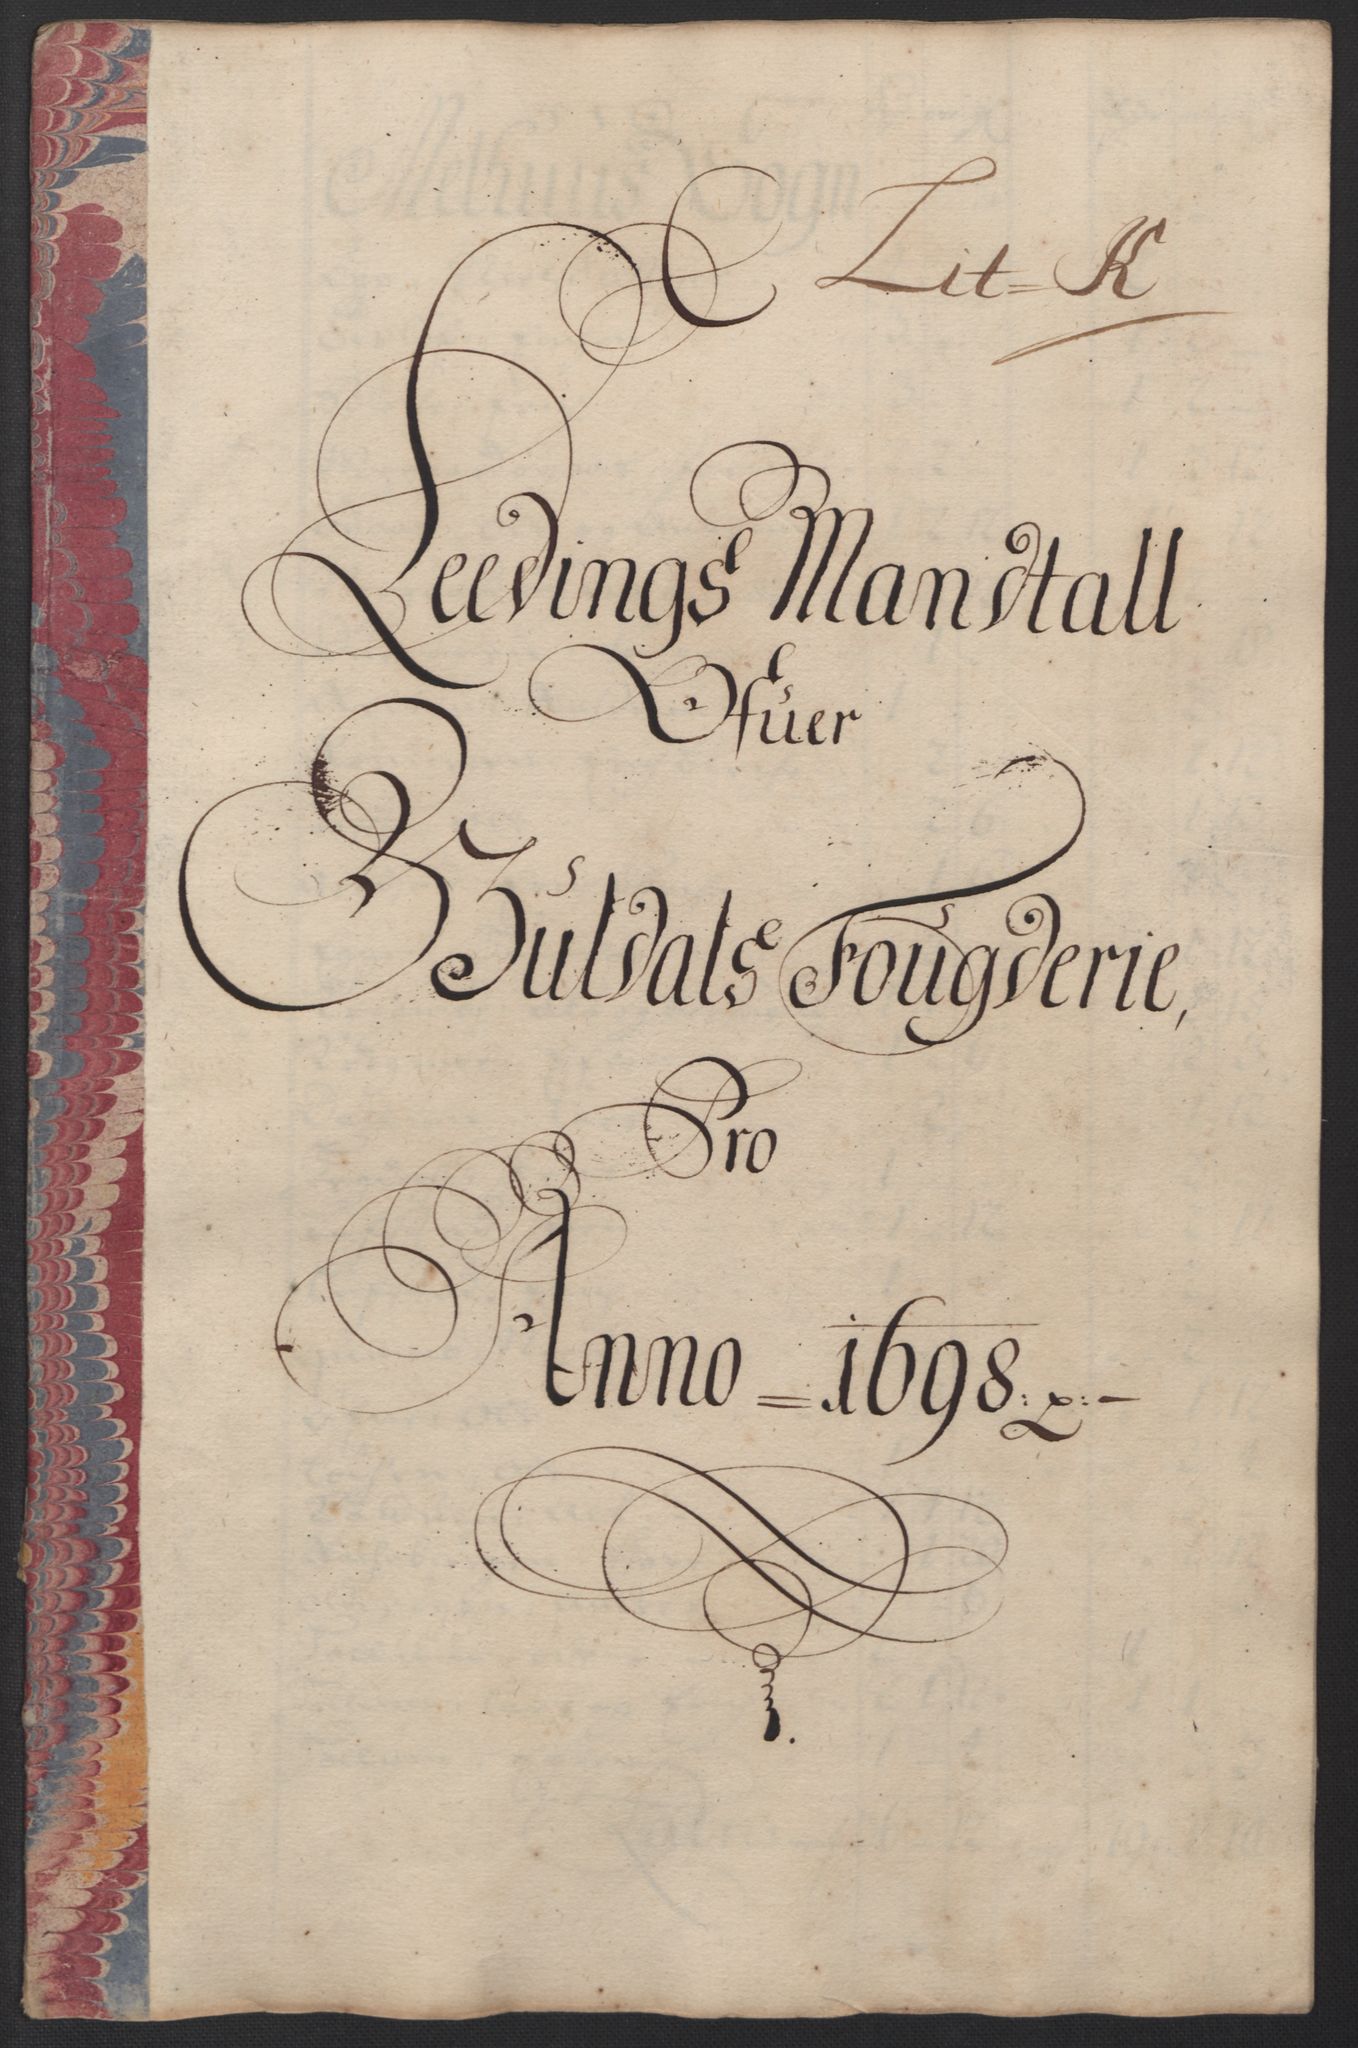 Lit= K
Leedings Mandtall
Ofuer
Guldals Fougderie,
Pro
Anno = 1698.